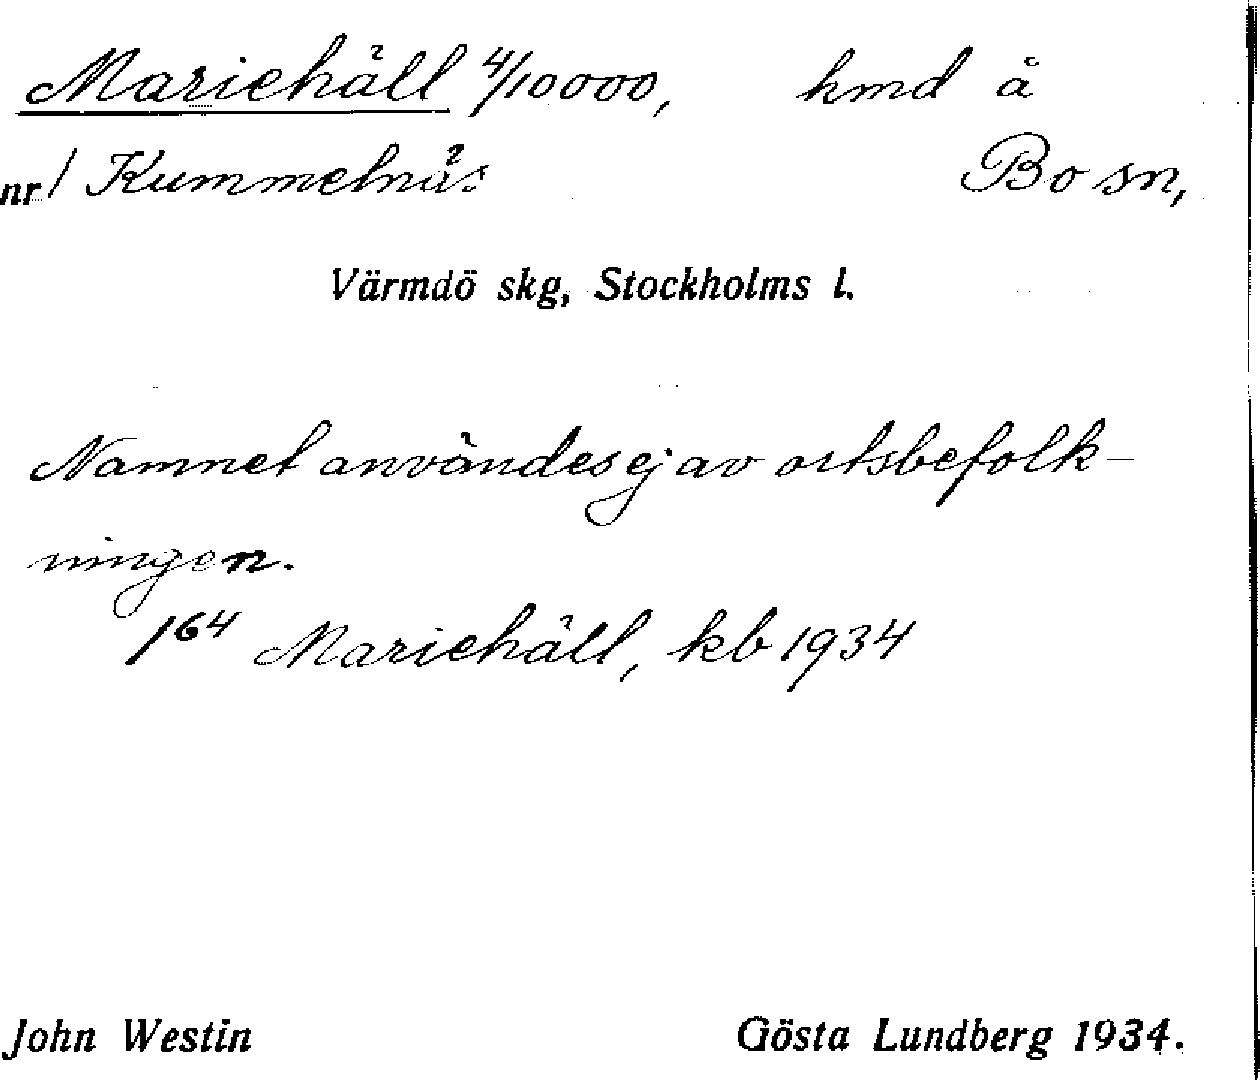 Mariehäll 4/10000, hmd å
nr 1 Kummelnäs Bo sn,
Värmdö skg, Stockholms l.
Namnet användes ej av ortsbefolk-
ningen.
1⁶⁴ Mariehäll, kb 1934
John Westin Gösta Lundberg 1934.